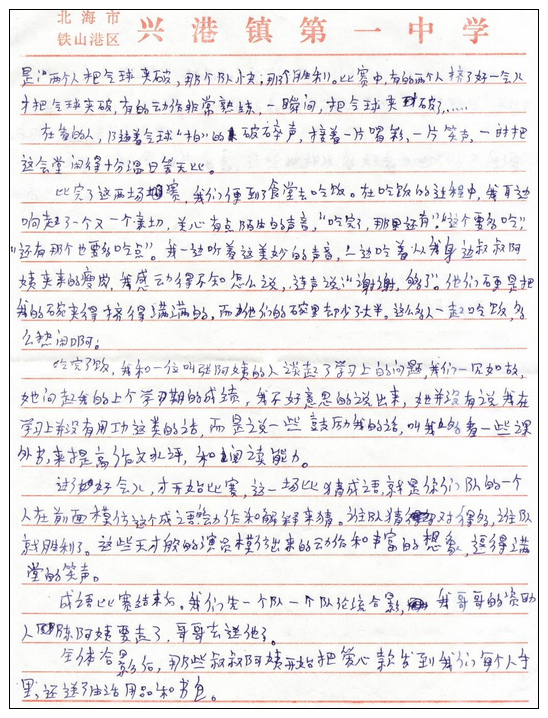 北海市
铁山港区
兴港镇第一中学
是:"两个人把气球夹破,那个队快,那个胜利。比赛中,有的两个人挤了好一会儿
才把气球夹破,有的动作非常熟练,一瞬间,把气球夹破了……
在台的人,随着气球"拍"的破碎声,接着一片喝彩,一片笑声,一时把
这会堂闹得十分温日笑无比。
比完了这两场赛,我们便到了食堂去吃饭。在吃饭的过程中,我耳边
响起了一个又一个亲切,关心有点陌生的声音,"吃完了,那里还有","这个要多吃",
"还有那个也要多吃点"。我一边听着这美妙的声音,一边吃着从我身边叔叔阿
姨夹来的瘦肉,我感动得不知怎么说,连声说:"谢谢,够了"。他们硬是把
我的碗夹得挤得了满满的,而他们的碗里却少了大半。这么多人一起吃饭,多
么热闹啊。
吃完了饭,我和一位叫张阿姨的人谈起了学习上的问题,我们一见如故,
她问起我的上个学期的成绩,我不好意思的说出来,她并没有说我在
学习上并没有用功这类的话,而是说一些鼓励我的话,叫我多看一些课
外书,来提高作文水评,和阅读能力。
过了好会儿,才开始比赛,这一场比猜成语,就是你们队的一个
人在前面模仿这个成语的动作和解释来猜。谁队猜对得多,谁队
就胜利了。这些天才般的演员模仿出来的动作和丰富的想象,逗得满
堂的笑声。
成语比赛结束后。我们先一个队一个队轮流合影,我哥哥的资助
人陈阿姨要走了,哥哥去送他了。
全体合影后,那些叔叔阿姨开始把爱心款发到我们每个人手
里,还送了生活用品和书包。